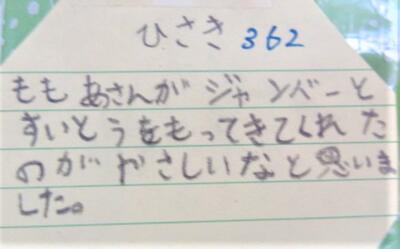 ひさき 362
ももあさんがジャンバーと
すいとうをもってきてくれた
のがやさしいなと思いま
した。